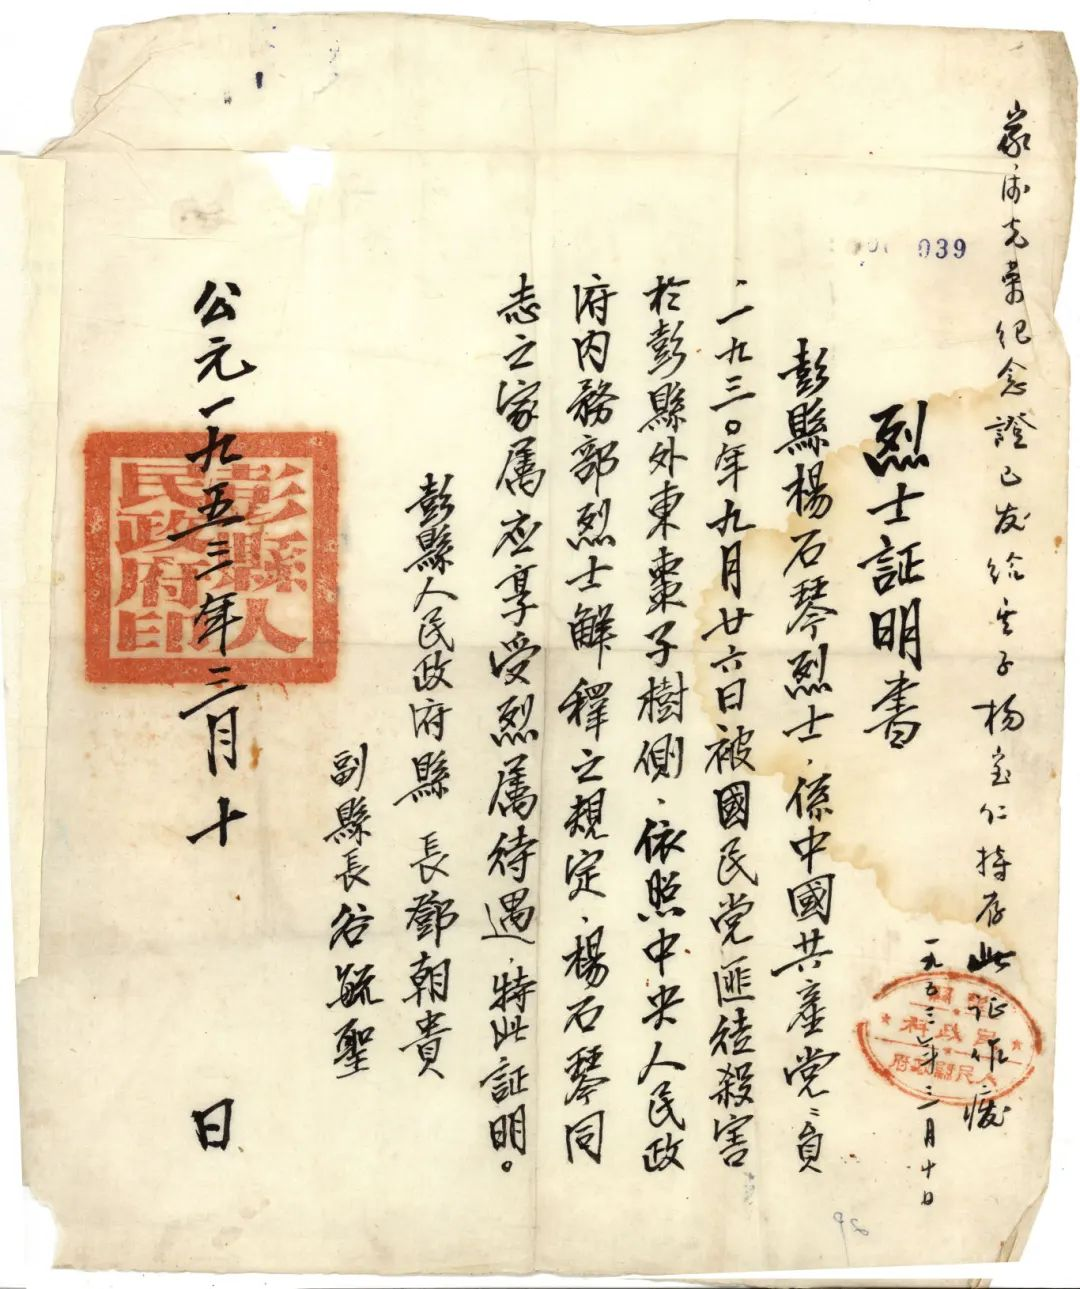 家属光荣纪念證已发给其子杨宝仁持存此证作废
一九五三年三月十日
039
烈士証明書
彭縣楊石琴烈士、係中國共產党々員
一九三〇年九月廿六日被國民党匪徒殺害
於彭縣外東棗子樹側、依照中央人民政
府内務部烈士解釋之規定、楊石琴同
志之家属应享受烈属待遇、特此証明。
彭縣人民政府縣長鄧朝貴
副縣長谷毓聖
公元一九五三年三月十日
彭縣人民政府印